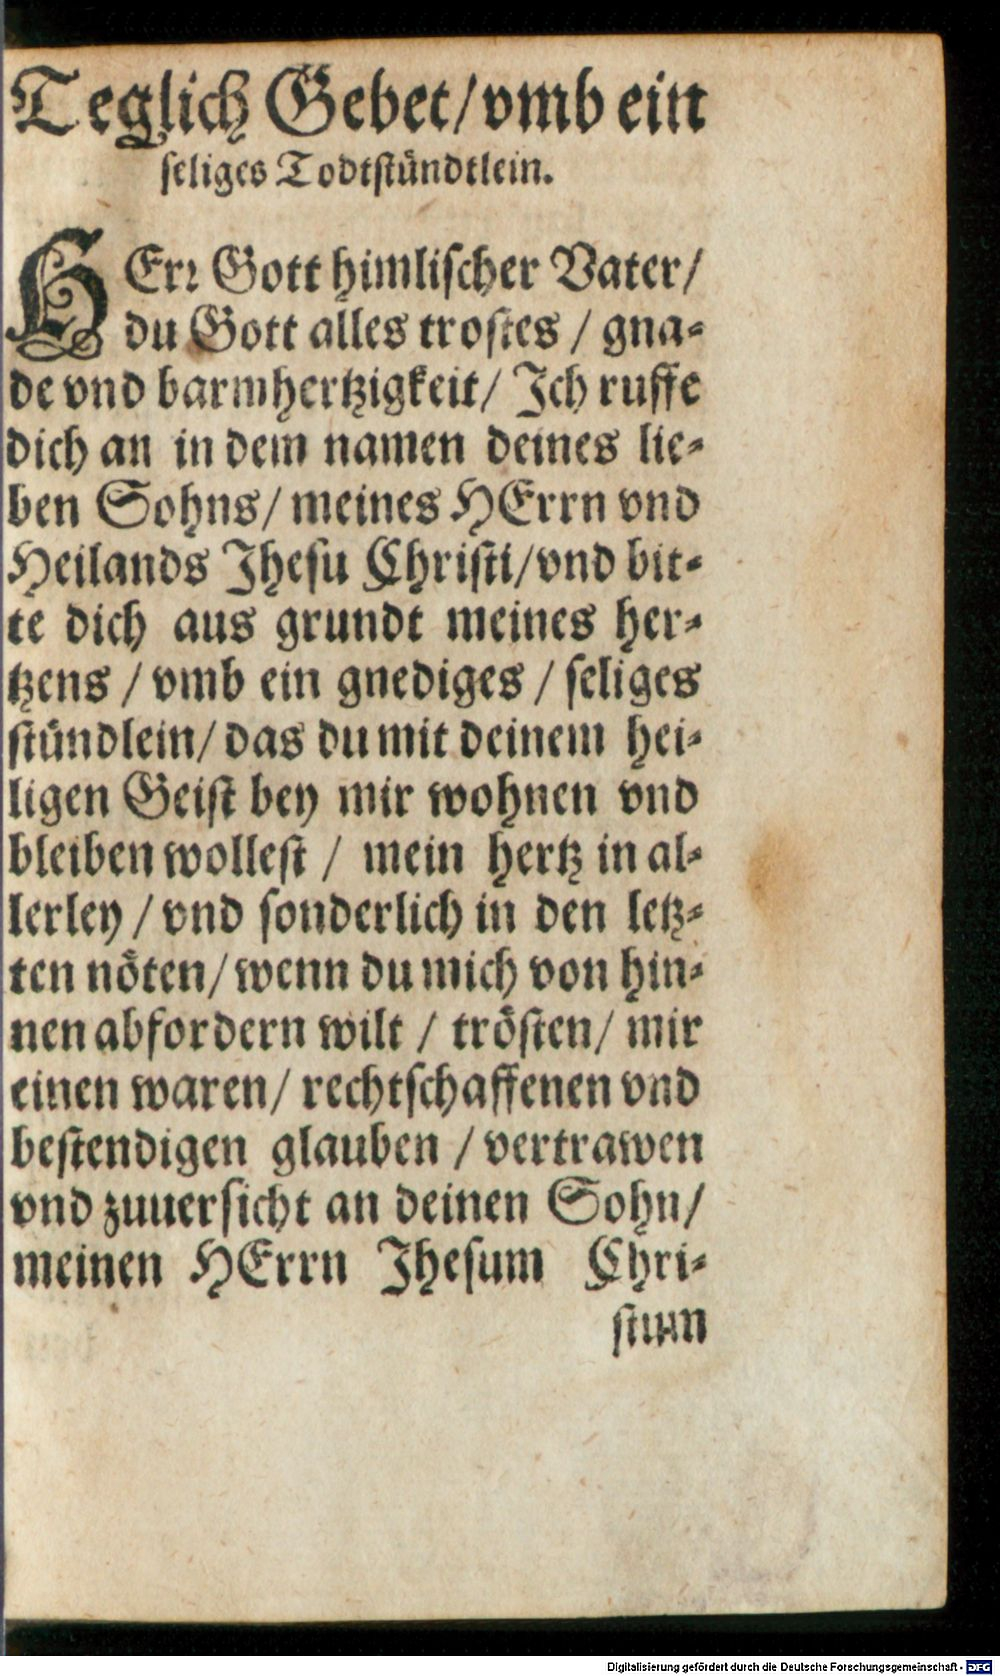 Teglich Gebet/ vmb ein
seliges Todtstündtlein.
HErꝛ Gott himlischer Vater/
du Gott alles trostes / gna⸗
de vnd barmhertzigkeit/ Ich ruffe
dich an in dem namen deines lie⸗
ben Sohns/ meines HErrn vnd
Heilands Jhesu Christi/ vnd bit⸗
te dich aus grundt meines her⸗
tzens / vmb ein gnediges / seliges
stündlein/ das du mit deinem hei⸗
ligen Geist bey mir wohnen vnd
bleiben wollest / mein hertz in al⸗
lerley / vnd sonderlich in den letz⸗
ten nöten/ wenn du mich von hin⸗
nen abfordern wilt / trösten/ mir
einen waren/ rechtschaffenen vnd
bestendigen glauben / vertrawen
vnd zuuersicht an deinen Sohn/
meinen HErrn Jhesum Chri⸗
stum
Digitalisierung gefördert durch die Deutsche Forschungsgemeinschaft - DFG